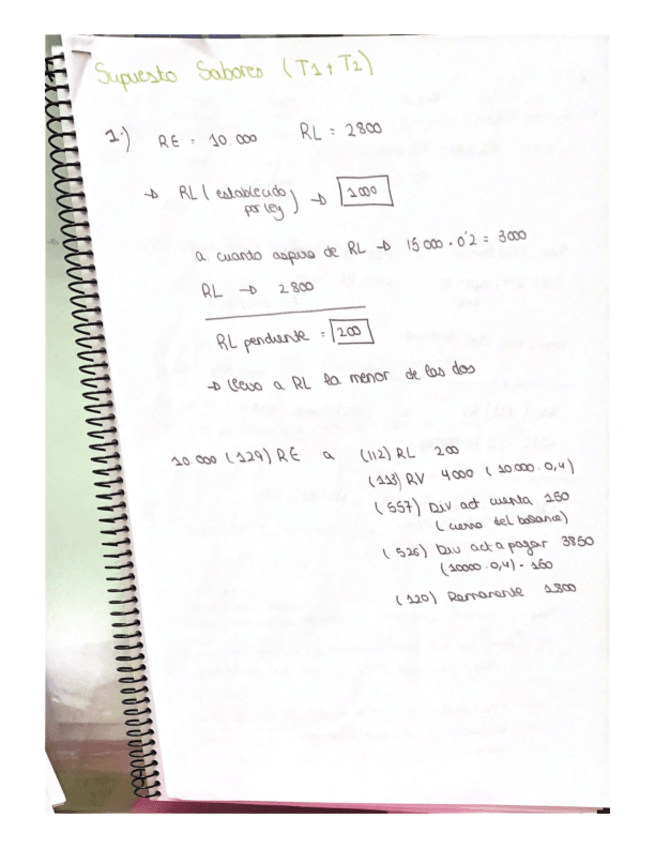 Supuesto Sabores (T1 + T2)
1.) RE = 10.000 RL = 2800
→ RL (establecido por ley) → 1000
a cuanto aspiro de RL → 15000 · 0'2 = 3000
RL → 2800
RL pendiente = 200
→ llevo a RL la menor de las dos
10.000 (129) RE a (112) RL 200
(113) RV 4000 (10.000 · 0,4)
(557) Div act cuenta 150
(cuenta del balance)
(526) Div act a pagar 3850
(10000 · 0,4) - 150
(120) Remanente 1800